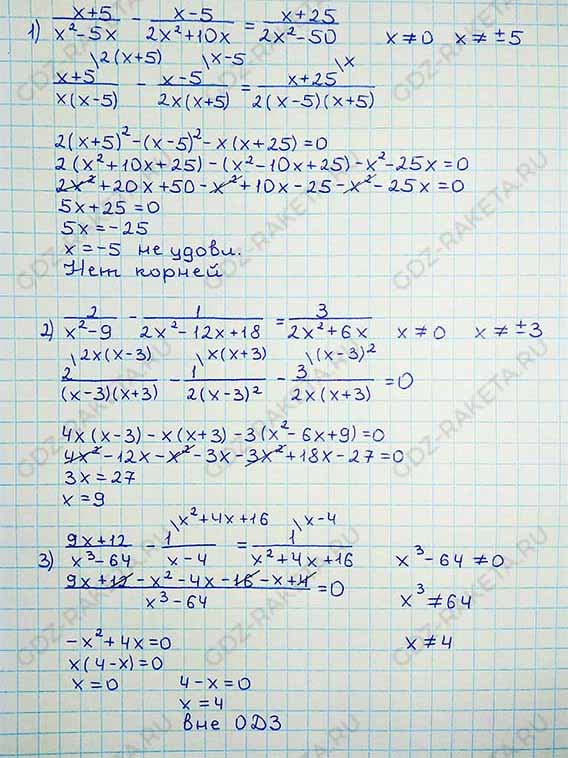 1) (x+5)/(x²-5x) - (x-5)/(2x²+10x) = (x+25)/(2x²-50)   x≠0   x≠±5
(x+5)/(x(x-5)) \2(x+5) - (x-5)/(2x(x+5)) \x-5 = (x+25)/(2(x-5)(x+5)) \x
2(x+5)²-(x-5)²-x(x+25)=0
2(x²+10x+25)-(x²-10x+25)-x²-25x=0
2x²+20x+50-x²+10x-25-x²-25x=0
5x+25=0
5x=-25
x=-5 не удовл.
Нет корней
2) 2/(x²-9) - 1/(2x²-12x+18) = 3/(2x²+6x)   x≠0   x≠±3
2/((x-3)(x+3)) \2x(x-3) - 1/(2(x-3)²) \x(x+3) - 3/(2x(x+3)) \(x-3)² =0
4x(x-3)-x(x+3)-3(x²-6x+9)=0
4x²-12x-x²-3x-3x²+18x-27=0
3x=27
x=9
3) (9x+12)/(x³-64) - 1/(x-4) \x²+4x+16 = 1/(x²+4x+16) \x-4   x³-64≠0
(9x+12-x²-4x-16-x+4)/(x³-64) =0   x³≠64
-x²+4x=0   x≠4
x(4-x)=0
x=0   4-x=0
x=4
вне ОДЗ
GDZ-RAKETA.RU